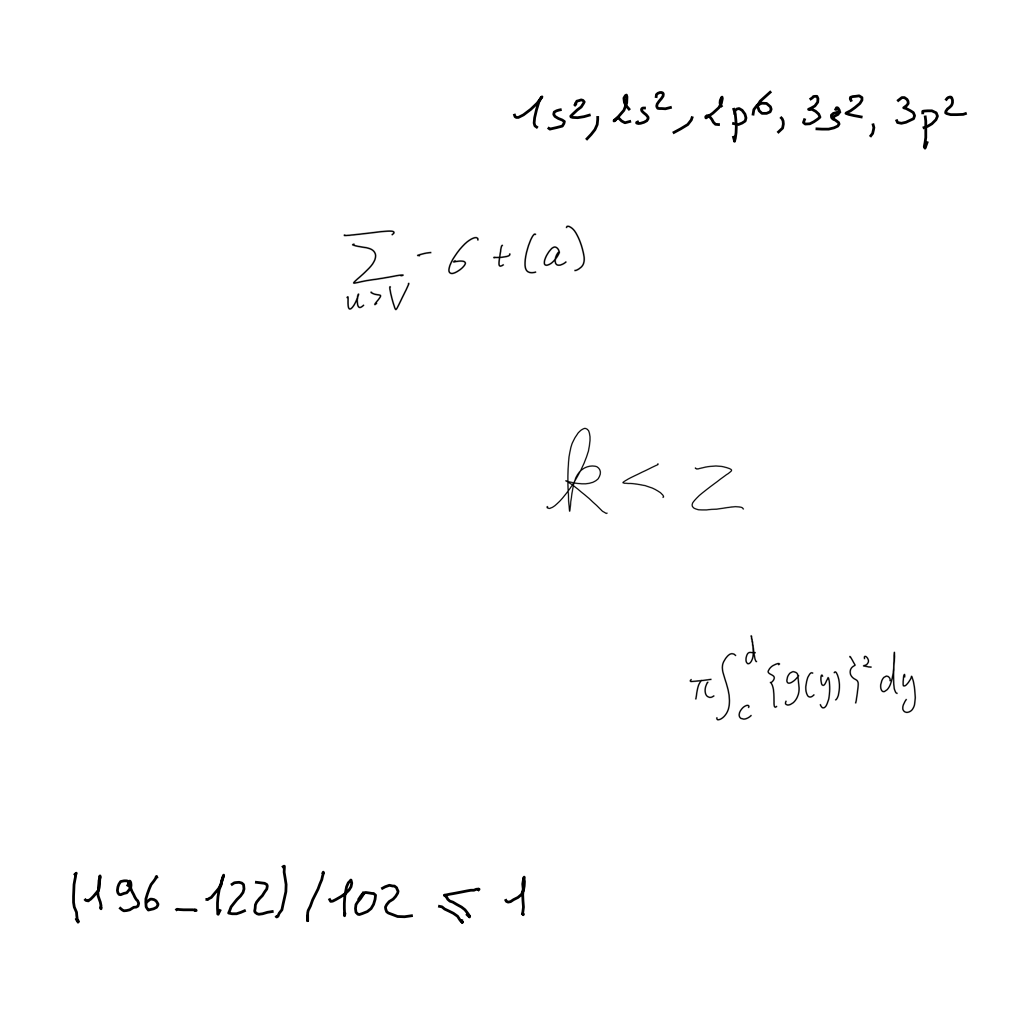 1s², 2s², 2p⁶, 3s², 3p²
∑_{u>v} - 6 + (a)
k < z
π∫_c^d {g(y)}² dy
(196 - 122) / 102 ⩽ 1